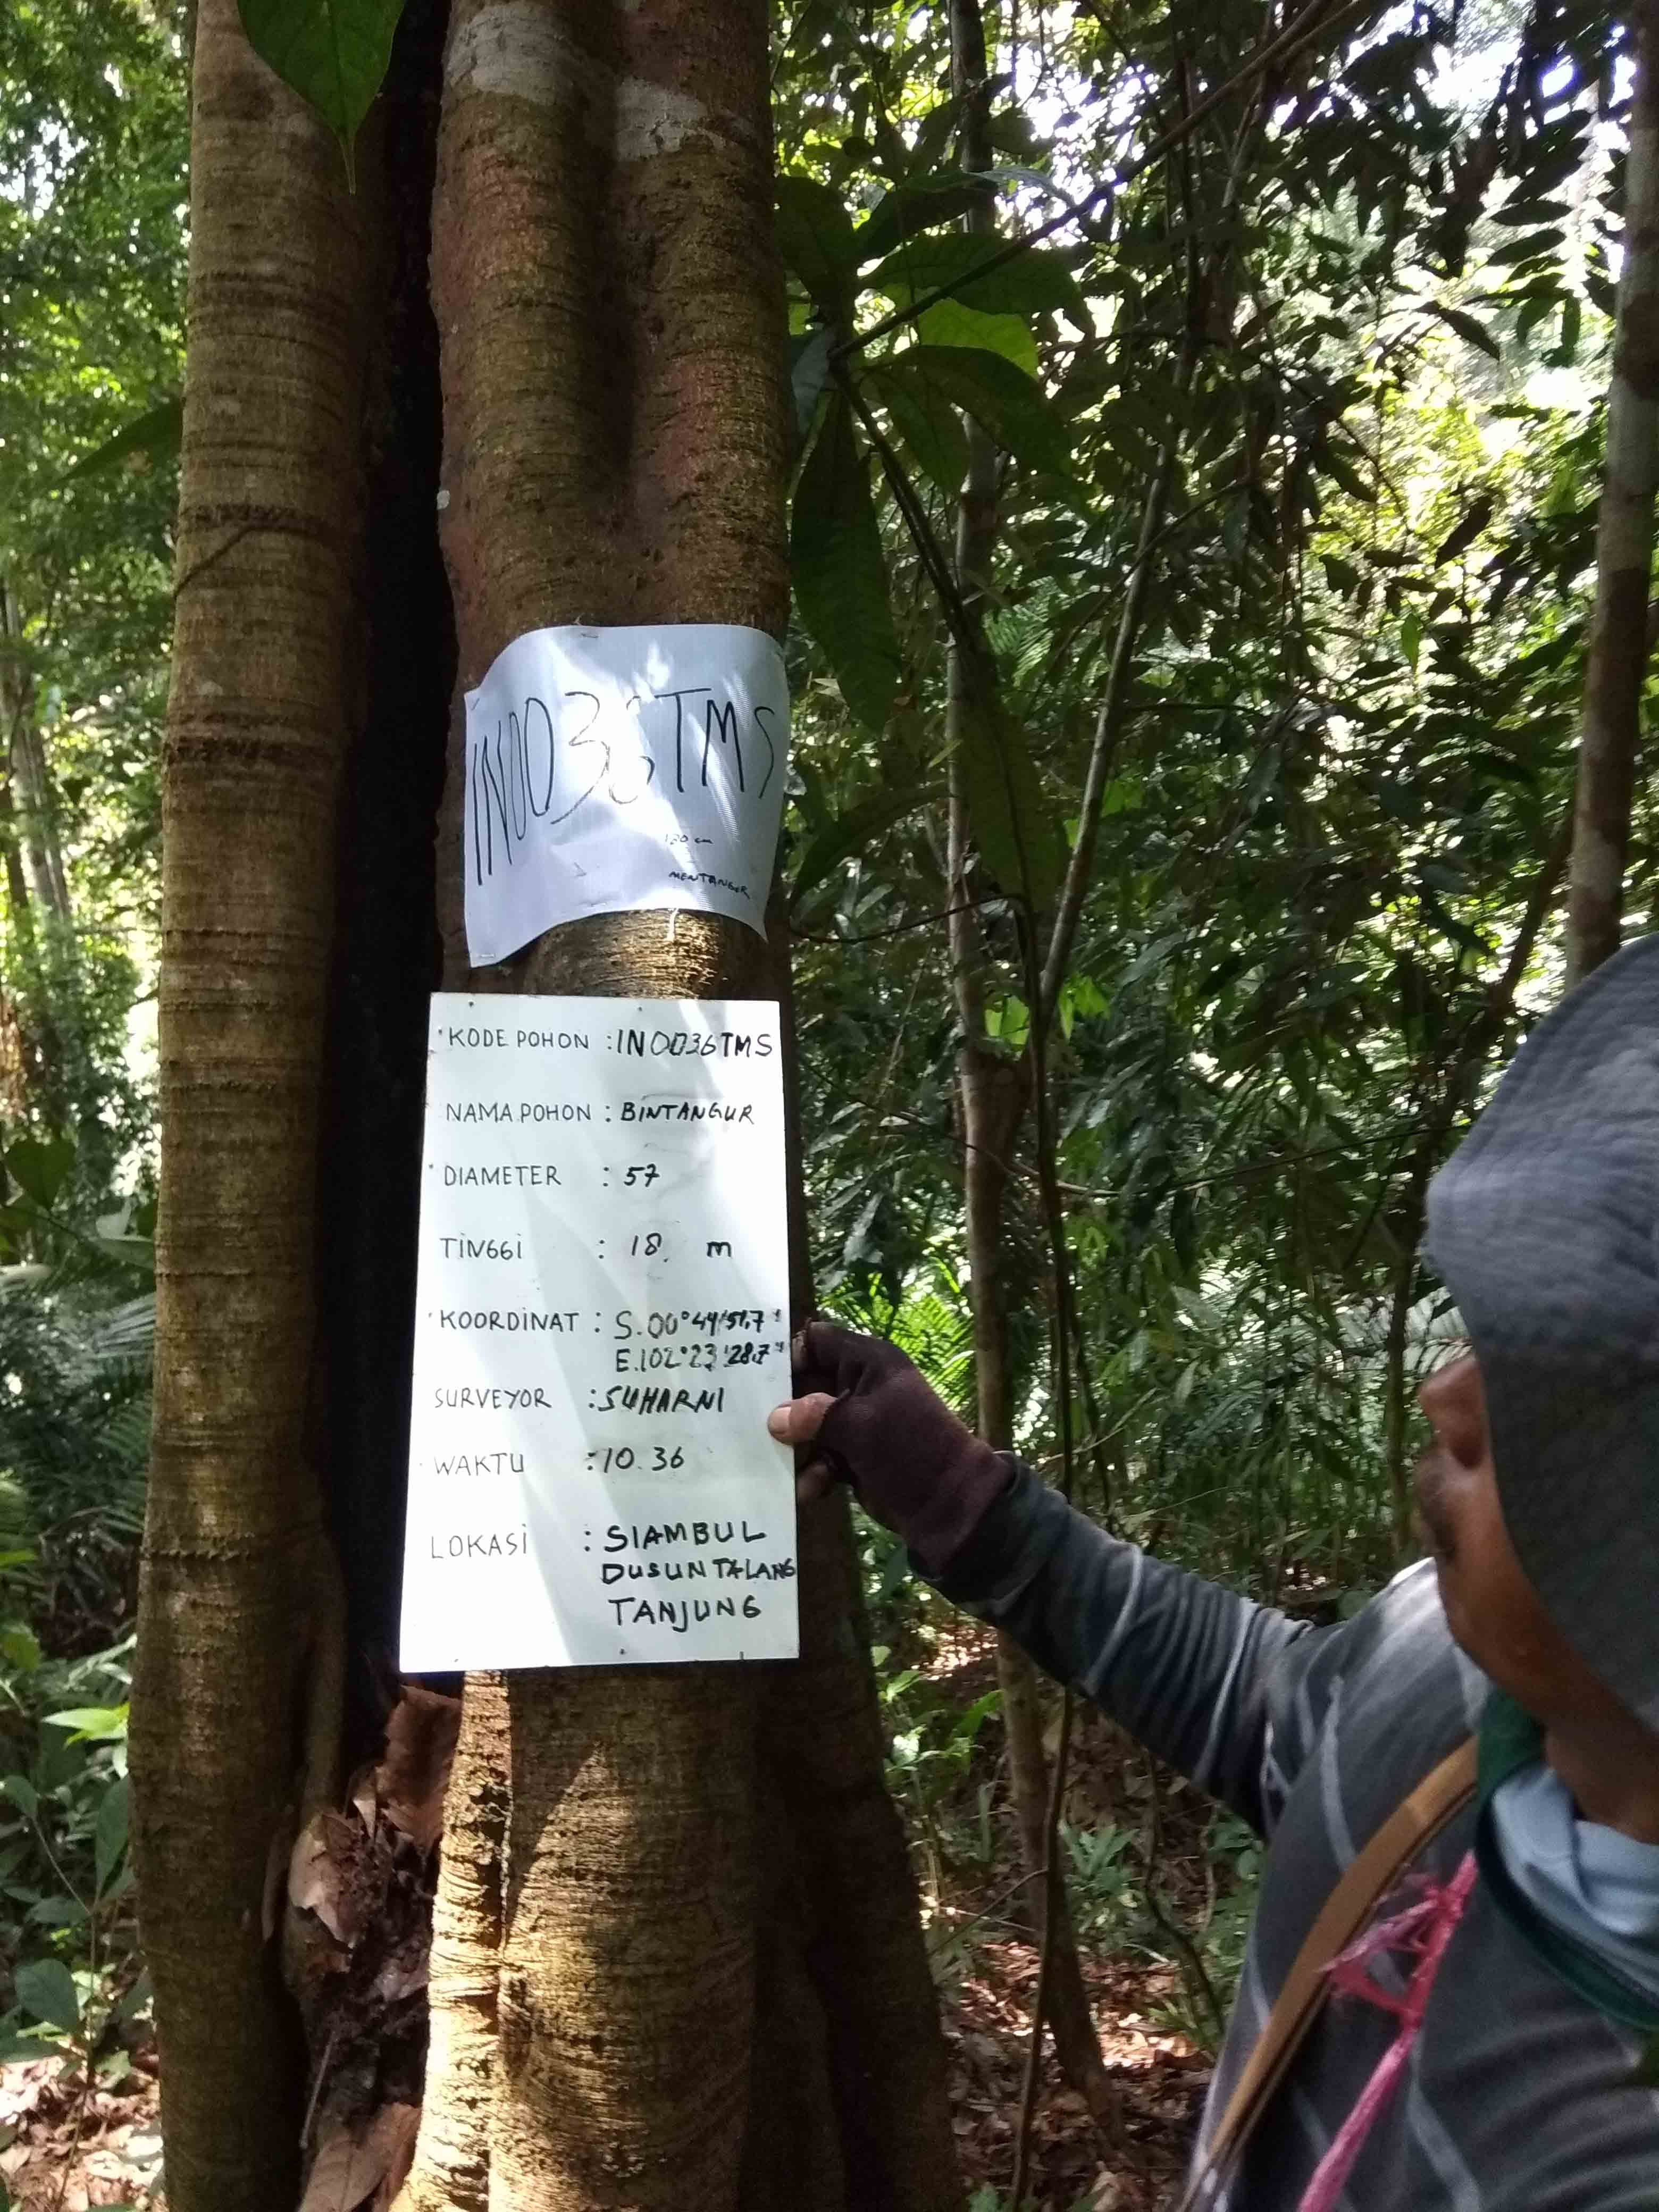 IN0036TMS
120 cm
MENTANGUR
KODE POHON : IN0036TMS
NAMA POHON : BINTANGUR
DIAMETER : 57
TINGGI : 18 m
KOORDINAT : S.00°44'51,7"
E.102°23'28,7"
SURVEYOR : SUHARNI
WAKTU : 10.36
LOKASI : SIAMBUL
DUSUN TALANG
TANJUNG